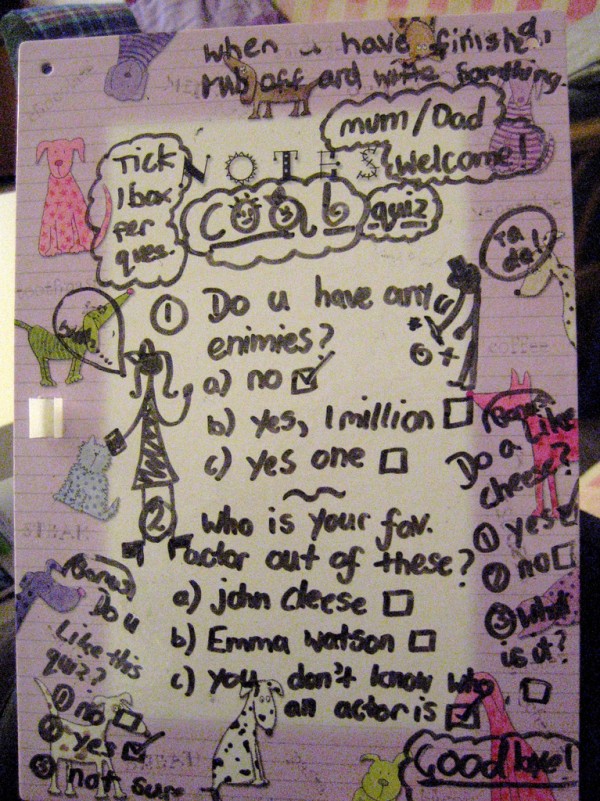 when u have finished,
rub off and write somthing.
mum/Dad
welcome!
Tick
1 box
per
ques.
NOTES
COOL quiz
Ta
da!
① Do u have any
enimies?
a) no ☑
b) yes, 1 million ☐
c) yes one ☐
② Who is your fav.
actor out of these?
a) john cleese ☐
b) Emma Watson ☐
c) you don't know who
an actor is ☑
Bonus
Do u like
cheese?
① yes ☑
② no ☐
③ what
is it? ☐
Bonus
Do u
Like this
quiz??
① no ☐
② yes ☑
③ not sure
Good luck!